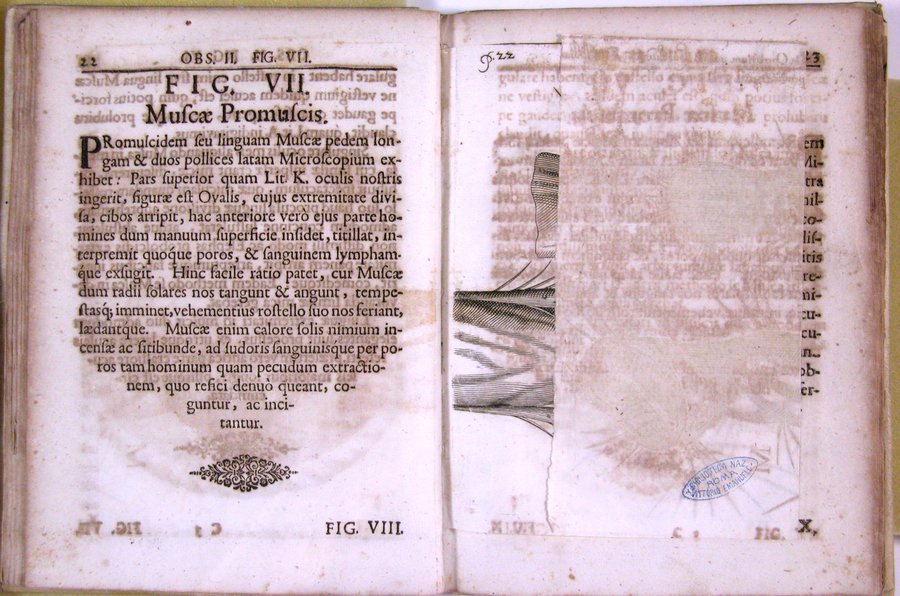 22 OBS. II. FIG. VII.
FIG. VII.
Muſcæ Promuſcis.
PRomuſcidem ſeu linguam Muſcæ pedem lon-
gam & duos pollices latam Microſcopium ex-
hibet: Pars ſuperior quam Lit K. oculis noſtris
ingerit, figuræ eſt Ovalis, cujus extremitate divi-
ſa, cibos arripit, hac anteriore verò ejus parte ho-
mines dum manuum ſuperficie inſidet, titillat, in-
terpremit quoque poros, & ſanguinem lympham-
que exſugit. Hinc facile ratio patet, cur Muſcæ
dum radii ſolares nos tangunt & angunt, tempe-
ſtasq́; imminet, vehementius roſtello ſuo nos feriant,
lædantque. Muſcæ enim calore ſolis nimium in-
cenſæ ac ſitibundæ, ad ſudoris ſanguinisque per po-
ros tam hominum quam pecudum extractio-
nem, quo refici denuo queant, co-
guntur, ac inci-
tantur.
FIG. VIII.
p. 22
23
em
Mi-
tra
co-
liſ-
itis
re-
ni-
cu-
cu-
ob-
er-
X,
BIBLIOTECA NAZ.
ROMA
VITTORIO EMANUELE